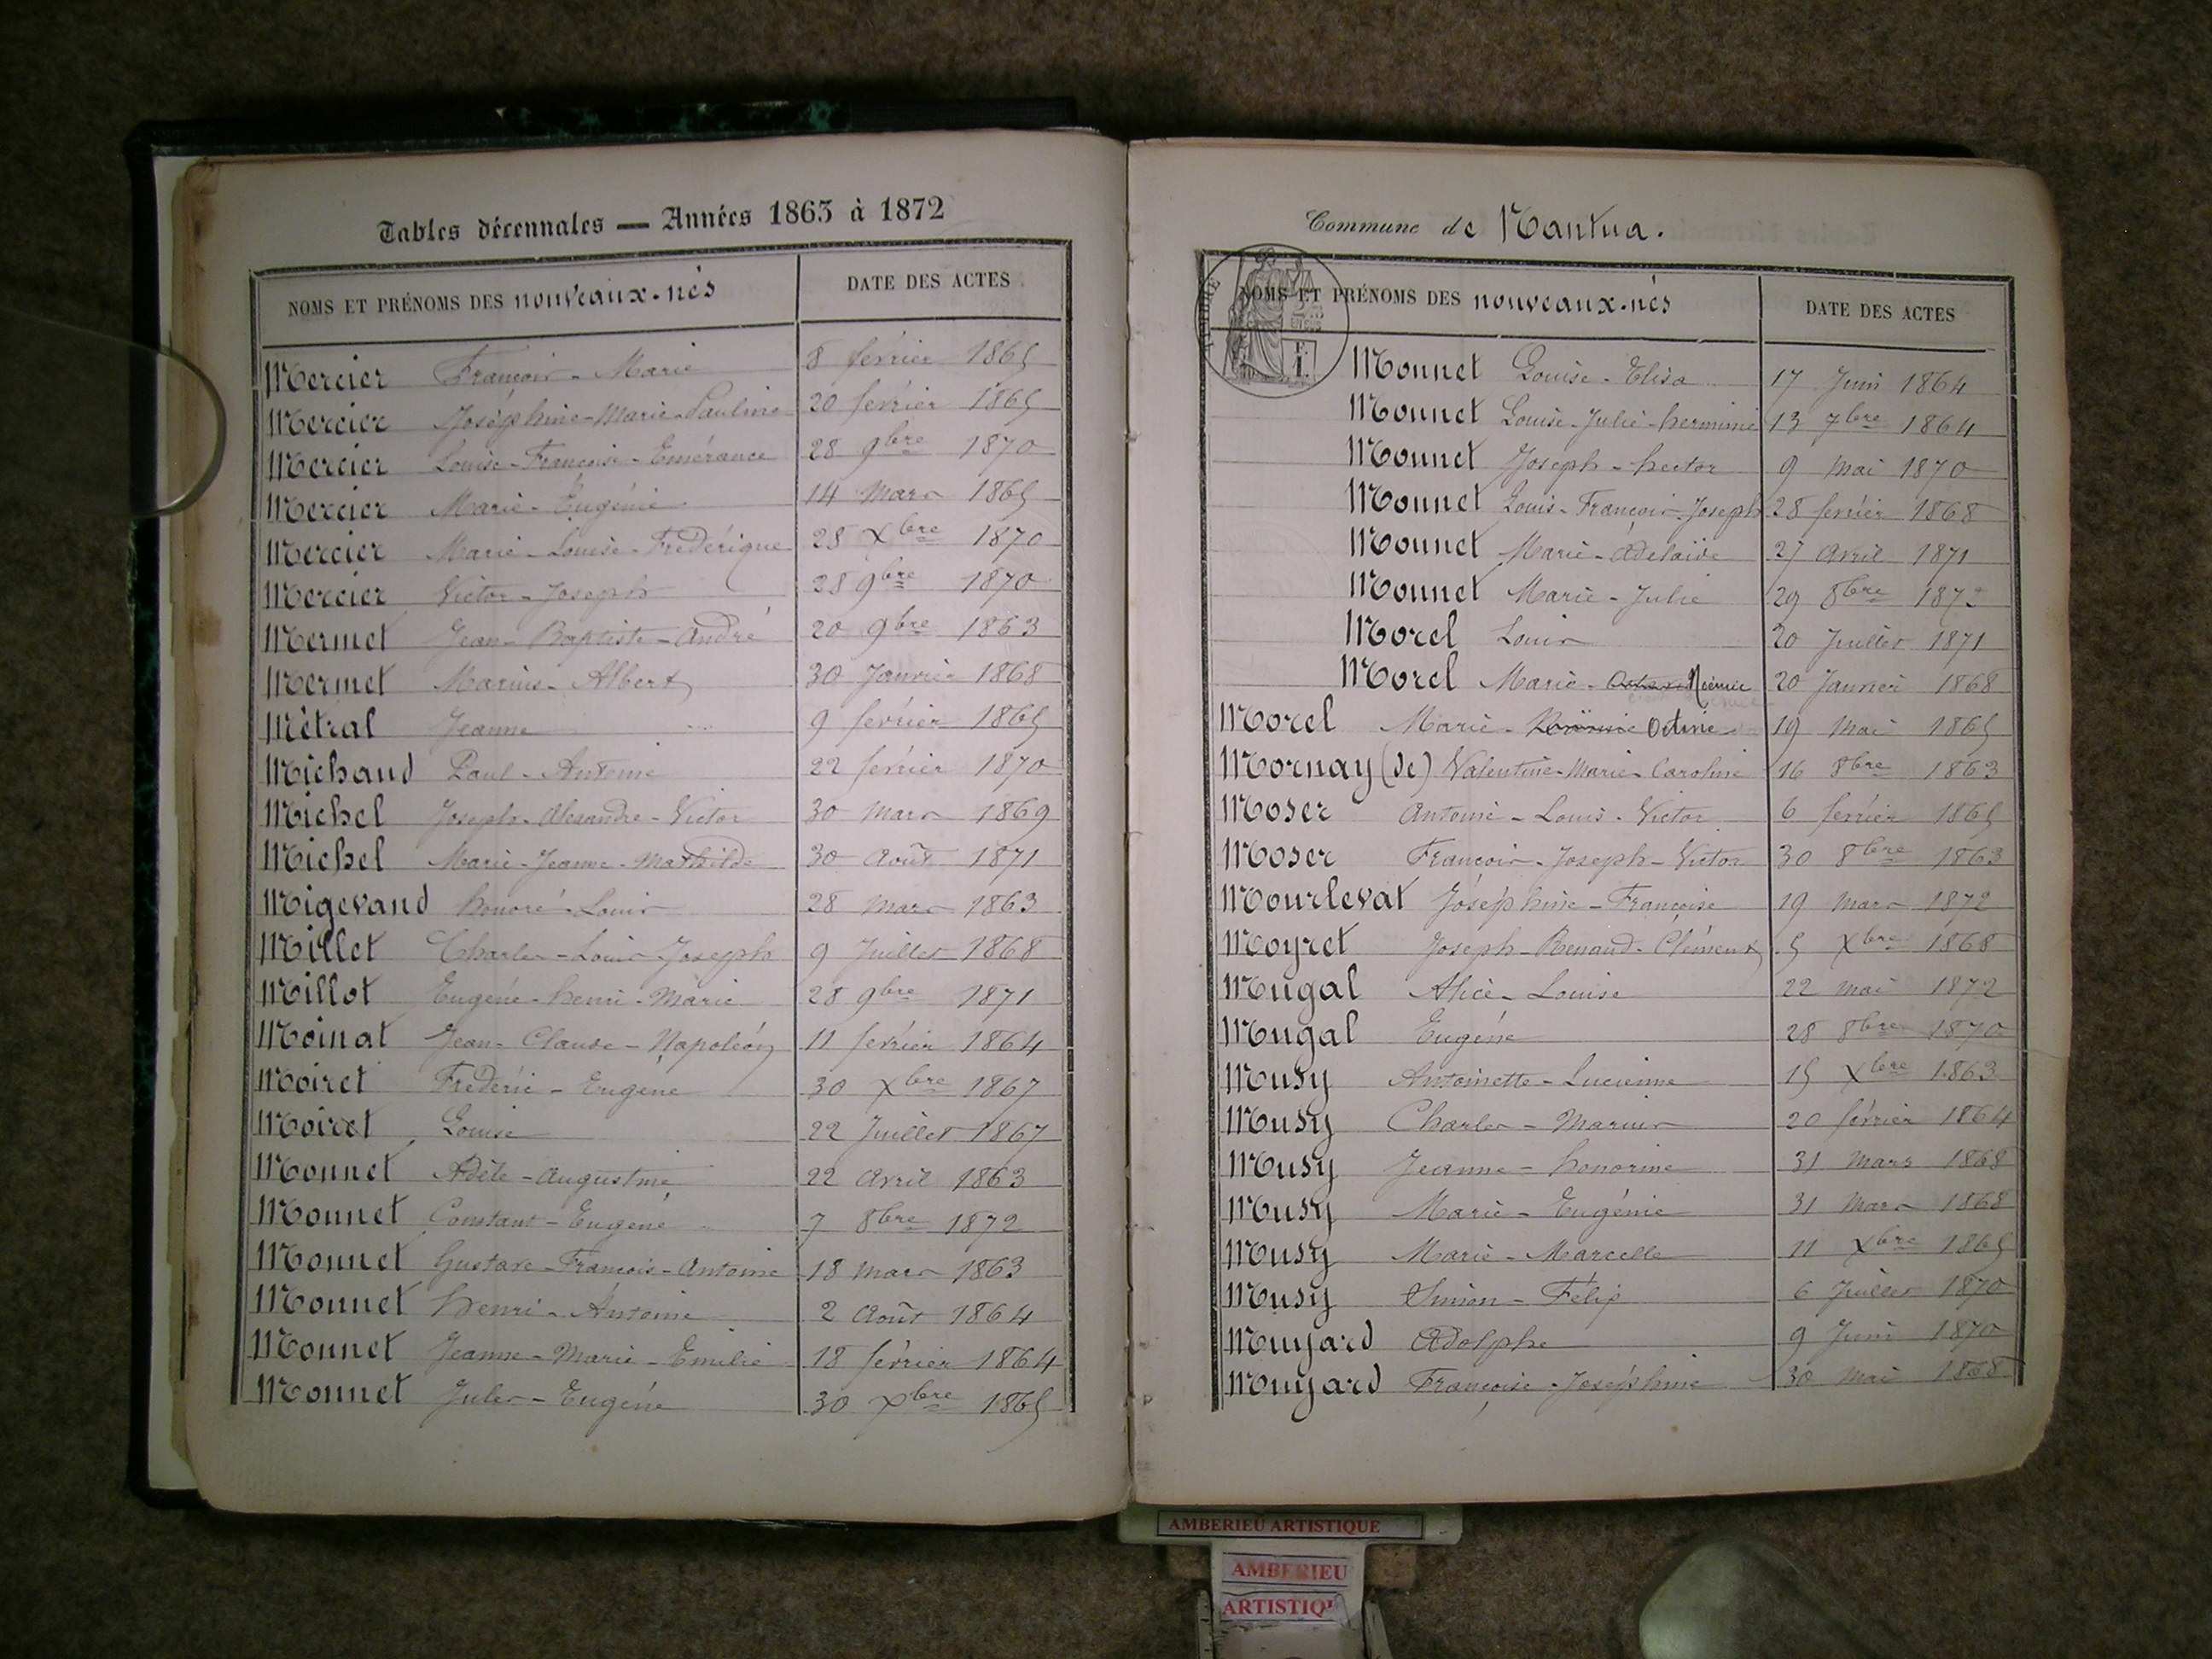 Tables décennales — Années 1863 à 1872
NOMS ET PRÉNOMS DES nouveaux-nés DATE DES ACTES
Mercier François-Marie 8 février 1865
Mercier Joséphine-Marie-Pauline 20 février 1865
Mercier Louise-Françoise-Emérance 28 9bre 1870
Mercier Marie-Eugénie 14 Mars 1865
Mercier Marie-Louise-Frédérique 28 Xbre 1870
Mercier Victor-Joseph 28 9bre 1870
Mermet Jean-Baptiste-André 20 9bre 1863
Mermet Marius-Albert 30 Janvier 1868
Métral Jeanne 9 février 1865
Michaud Paul-Antoine 22 février 1870
Michel Joseph-Alexandre-Victor 30 Mars 1869
Michel Marie-Jeanne-Mathilde 30 Août 1871
Migevand honoré-Louis 28 Mars 1863
Millet Charles-Louis-Joseph 9 Juillet 1868
Millot Eugène-henri-Marie 28 9bre 1871
Moinat Jean-Claude-Napoléon 11 février 1864
Moiret Frédéric-Eugène 30 Xbre 1867
Moiret Louise 22 Juillet 1867
Monnet Adèle-Augustine 22 Avril 1863
Monnet Constant-Eugène 7 8bre 1872
Monnet Gustave-François-Antoine 18 Mars 1863
Monnet henri-Antoine 2 Août 1864
Monnet Jeanne-Marie-Emilie 18 février 1864
Monnet Jules-Eugène 30 Xbre 1865
Commune de Nantua.
NOMS ET PRÉNOMS DES nouveaux-nés DATE DES ACTES
Monnet Louise-Elisa 17 Juin 1864
Monnet Louise-Julie-herminie 13 7bre 1864
Monnet Joseph-hector 9 Mai 1870
Monnet Louis-François-Joseph 28 février 1868
Monnet Marie-Adélaïde 27 Avril 1871
Monnet Marie-Julie 29 8bre 1872
Morel Louis 20 Juillet 1871
Morel Marie- 20 Janvier 1868
Morel Marie- Octavie 19 Mai 1865
Mornay (de) Valentine-Marie-Caroline 16 8bre 1863
Moser Antoine-Louis-Victor 6 février 1865
Moser François-Joseph-Victor 30 8bre 1863
Mourlevat Joséphine-Françoise 19 Mars 1872
Moyret Joseph-Renaud-Clément 5 Xbre 1868
Mugal Alice-Louise 22 Mai 1872
Mugal Eugène 28 8bre 1870
Musy Antoinette-Lucienne 15 Xbre 1863
Musy Charles-Marius 20 février 1864
Musy Jeanne-honorine 31 Mars 1868
Musy Marie-Eugénie 31 Mars 1868
Musy Marie-Marcelle 11 Xbre 1865
Musy Simon-Félix 6 Juillet 1870
Muyard Adolphe 9 Juin 1870
Muyard Françoise-Joséphine 30 Mai 1868
AMBERIEU ARTISTIQUE
AMBERIEU
ARTISTIQUE